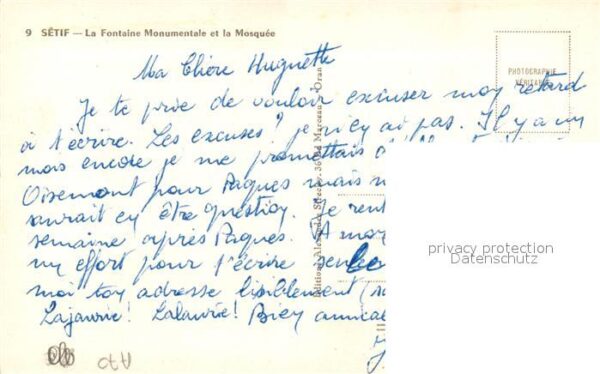 9 SÉTIF — La Fontaine Monumentale et la Mosquée
PHOTOGRAPHIE
VÉRITABLE
Ma Chère Huguette
Je te prie de vouloir excuser mon retard
à t'écrire. Les excuses? je n'en ai pas. Il y a un
mois encore je me promettais
Oisemont pour Pâques mais
saurait en être question. Je
semaine après Pâques. A
un effort pour t'écrire
moi ton adresse lisiblement
Lajaurie! Lalaurie! Bien
Editions Oran
privacy protection
Datenschutz